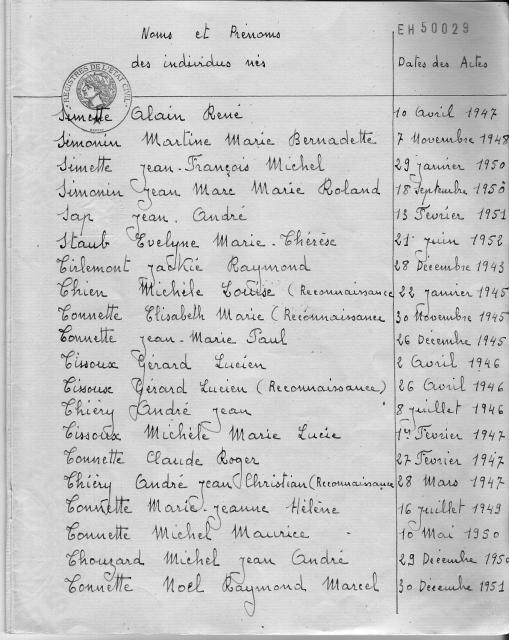 Noms et Prénoms
des individus nés
EH 50029
Dates des Actes
REGISTRES DE L'ETAT CIVIL
Simette Alain René 10 Avril 1947
Simonin Martine Marie Bernadette 7 Novembre 1948
Simette Jean-François Michel 29 Janvier 1950
Simonin Jean Marc Marie Roland 18 Septembre 1950
Sap Jean. André 13 Février 1951
Staub Evelyne Marie-Thérèse 21 Juin 1952
Tirlemont Jackie Raymond 28 Décembre 1943
Thien Michèle Louise (Reconnaissance 22 Janvier 1945
Tonnette Elisabeth Marie (Reconnaissance 30 Novembre 1945
Tonnette Jean-Marie Paul 26 Décembre 1945
Tissoux Gérard Lucien 2 Avril 1946
Tissoux Gérard Lucien (Reconnaissance) 26 Avril 1946
Thiéry André Jean 8 Juillet 1946
Tissoux Michèle Marie Lucie 1er Février 1947
Tonnette Claude Roger 27 Février 1947
Thiéry André Jean Christian (Reconnaissance 28 Mars 1947
Tonnette Marie-Jeanne Hélène 16 Juillet 1949
Tonnette Michel Maurice 10 Mai 1950
Thouzard Michel Jean André 29 Décembre 1950
Tonnette Noël Raymond Marcel 30 Décembre 1951